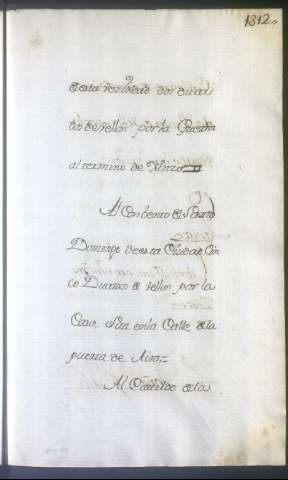 1312
de esta vezindad dos ducad
dos de vellon por la Guerta
al termino de
Al Conbento de Santo
Domingo de esta Ciudad Cin
co Ducados de vellon por la
Casa, sita en la Calle de la
puerta de
Al Cavildo de la